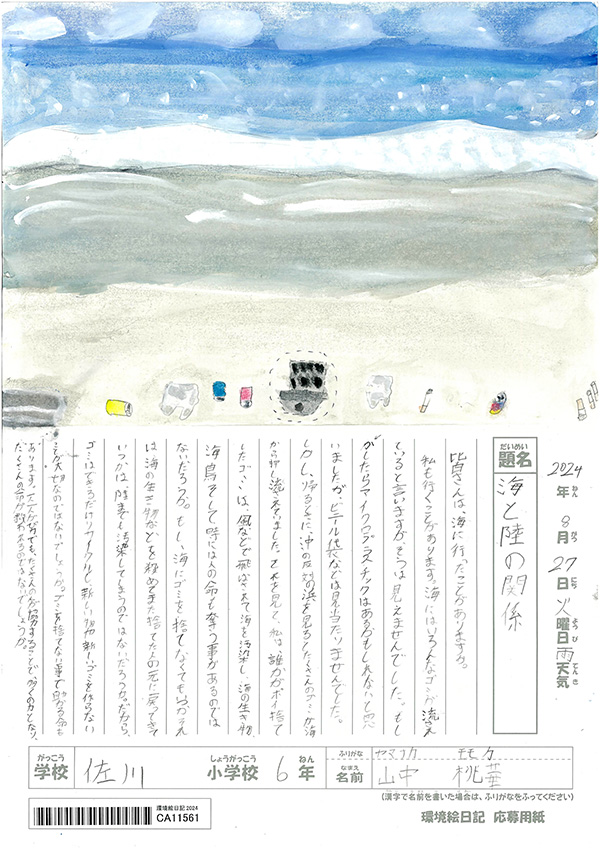 だいめい
題名
海と陸の関係
2024年 8月 27日 火曜日 雨天気
ねん がつ にち ようび てんき
皆さんは、海に行ったことがありますか。
私も行くことがあります。海にはいろんなゴミが流れ
ていると言いますがそうは見えませんでした。もし
かしたらマイクロプラスチックはあるかもしれないと思
いましたが、ビニール袋などは見当たりませんでした。
しかし、帰るときに沖の反対の浜を見るとたくさんのゴミが海
から押し流されていました。それを見て、私は、誰かがポイ捨て
したゴミは、風などで飛ばされて海を汚染し、海の生き物
海鳥そして時には人の命も奪う事があるのでは
ないだろうか。もし、海にゴミを捨てなくてもいつかそれ
は海の生き物などを殺めてまた捨てた人の元に戻ってきて
いつかは、陸まで汚染してしまうのではないだろうか。だから、
ゴミはできるだけリサイクルし、新しい物や新しいゴミを作らない
ことが大切なのではないでしょうか。ゴミを捨てない事で助かる命も
あります。一人が努力でも、たくさんの方が協力することで多くの力となり、
たくさんの命が救われるのではないでしょうか。
がっこう しょうがっこう ねん
学校 佐川 小学校 6年
ふりがな ヤマナカ モモカ
なまえ
名前 山中 桃華
(漢字で名前を書いた場合は、ふりがなをふってください)
環境絵日記2024
CA11561
環境絵日記 応募用紙